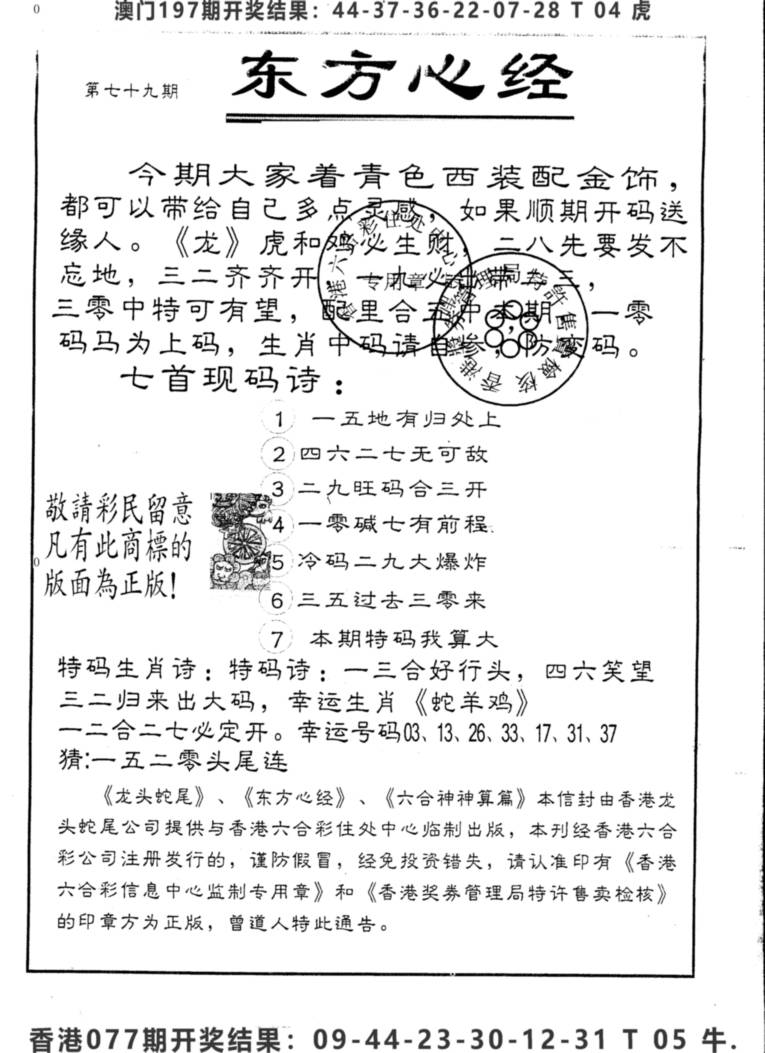 0
澳门197期开奖结果：44-37-36-22-07-28 T 04 虎
第七十九期
东方心经
今期大家着青色西装配金饰，
都可以带给自己多点灵感，如果顺期开码送
缘人。《龙》虎和鸡必生财，二八先要发不
忘地，三二齐齐开，一九必出带二三，
三零中特可有望，配里合五中本期，一零
码马为上码，生肖中码请自参，防假码。
七首现码诗：
1 一五地有归处上
2 四六二七无可敌
3 二九旺码合三开
4 一零碱七有前程
5 冷码二九大爆炸
6 三五过去三零来
7 本期特码我算大
敬請彩民留意
凡有此商標的
版面為正版!
0
特码生肖诗：特码诗：一三合好行头，四六笑望
三二归来出大码，幸运生肖《蛇羊鸡》
一二合二七必定开。幸运号码03、13、26、33、17、31、37
猜:一五二零头尾连
《龙头蛇尾》、《东方心经》、《六合神神算篇》本信封由香港龙
头蛇尾公司提供与香港六合彩住处中心临制出版，本刊经香港六合
彩公司注册发行的，谨防假冒，经免投资错失，请认准印有《香港
六合彩信息中心监制专用章》和《香港奖券管理局特许售卖检核》
的印章方为正版，曾道人特此通告。
香港077期开奖结果：09-44-23-30-12-31 T 05 牛.